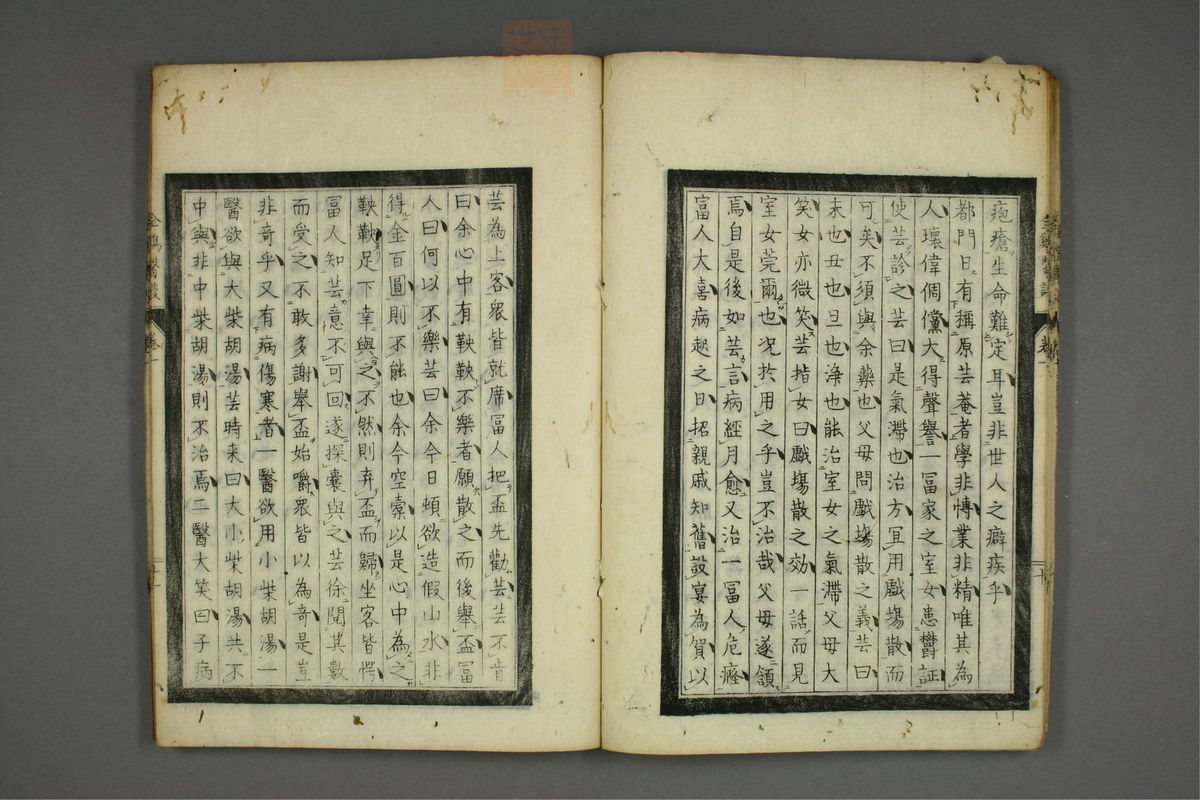 疱瘡生命難定耳豈非世人之癖疾乎
都門日有稱原芸菴者學非博業非精唯其為
人壞偉倜儻大得聲譽一冨家之室女患欝証
使芸診之芸曰是氣滯也治方冝用戲塲散而
可矣不須與余藥也父母問戲塲散之義芸曰
末也丑也旦也浄也能治室女之氣滯父母大
笑女亦微笑芸指女曰戲塲散之効一話而見
室女莞爾也况於用之乎豈不治哉父母遂領
焉自是後如芸言病經月愈又治一冨人危癥
富人大喜病起之日招親戚知舊設宴為賀以
芸為上客衆皆就席冨人把盃先勸芸芸不肯
曰余心中有鞅鞅不樂者願散之而後舉盃冨
人曰何以不樂芸曰余今日頓欲造假山水非
得金百圓則不能也余今空索以是心中為之
鞅鞅足下幸與之不然則弃盃而歸坐客皆愕
冨人知芸意不可回遂探囊與之芸徐閲其數
而受之不敢多謝舉盃始嚼衆皆以為奇是豈
非奇乎又有病傷寒者一醫欲用小柴胡湯一
醫欲與大柴胡湯芸時来曰大小柴胡湯共不
中與非中柴胡湯則不治焉二醫大笑曰子病